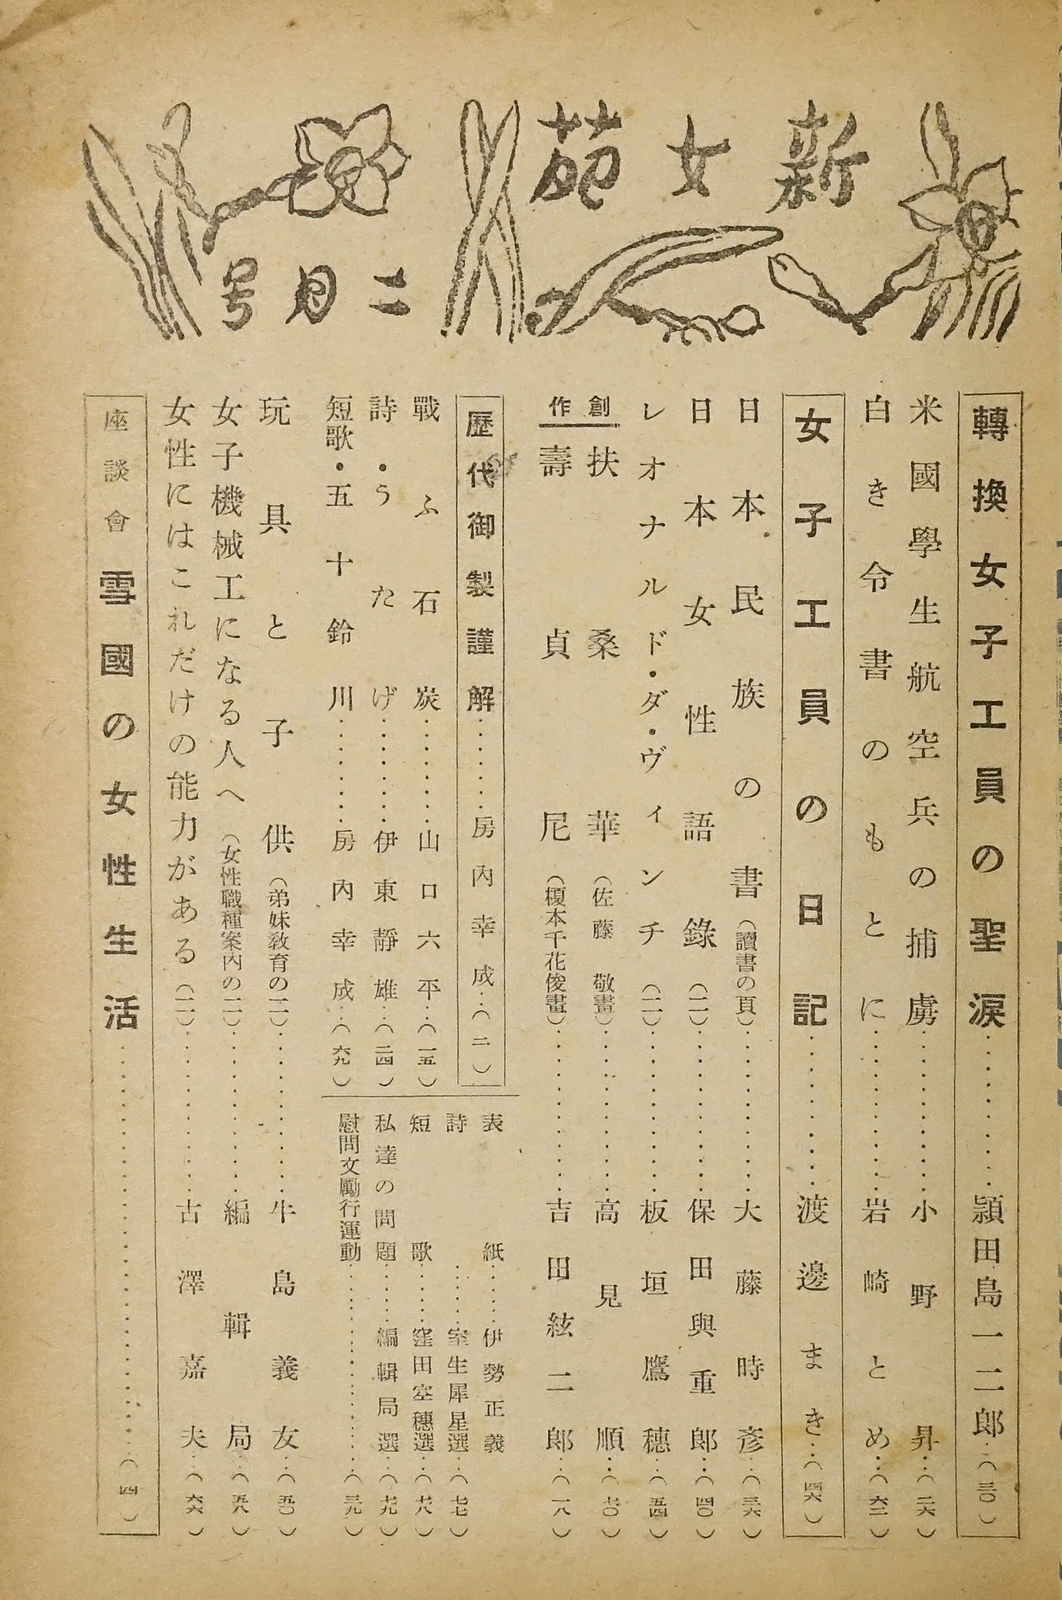 新女苑
二月号
轉換女子工員の聖涙……穎田島一二郎…(三〇)
米國學生航空兵の捕虜……小野昇…(二六)
白き令書のもとに……岩崎とめ…(六二)
女子工員の日記……渡邊まき…(四六)
日本民族の書(讀書の頁)……大藤時彦…(三六)
日本女性語錄(二)……保田與重郎…(四〇)
レオナルド・ダ・ヴィンチ(二)……板垣鷹穗…(五四)
創作
扶桑華(佐藤敬畫)……高見順…(七〇)
壽貞尼(榎本千花俊畫)……吉田絃二郎…(一八)
歷代御製謹解……房内幸成…(二)
戰ふ石炭……山口六平…(一五)
詩・うたた げ……伊東靜雄…(二四)
短歌・五十鈴川……房内幸成…(六九)
表紙……伊勢正義
詩……室生犀星選…(七七)
短歌……窪田空穗選…(七八)
私達の問題……編輯局選…(七九)
慰問文勵行運動……(三九)
玩具と子供(弟妹敎育の二)……牛島義女…(五〇)
女子機械工になる人へ(女性職種案内の二)……編輯局…(五八)
女性にはこれだけの能力がある(二)……古澤嘉夫…(六六)
座談會 雪國の女性生活……(四)